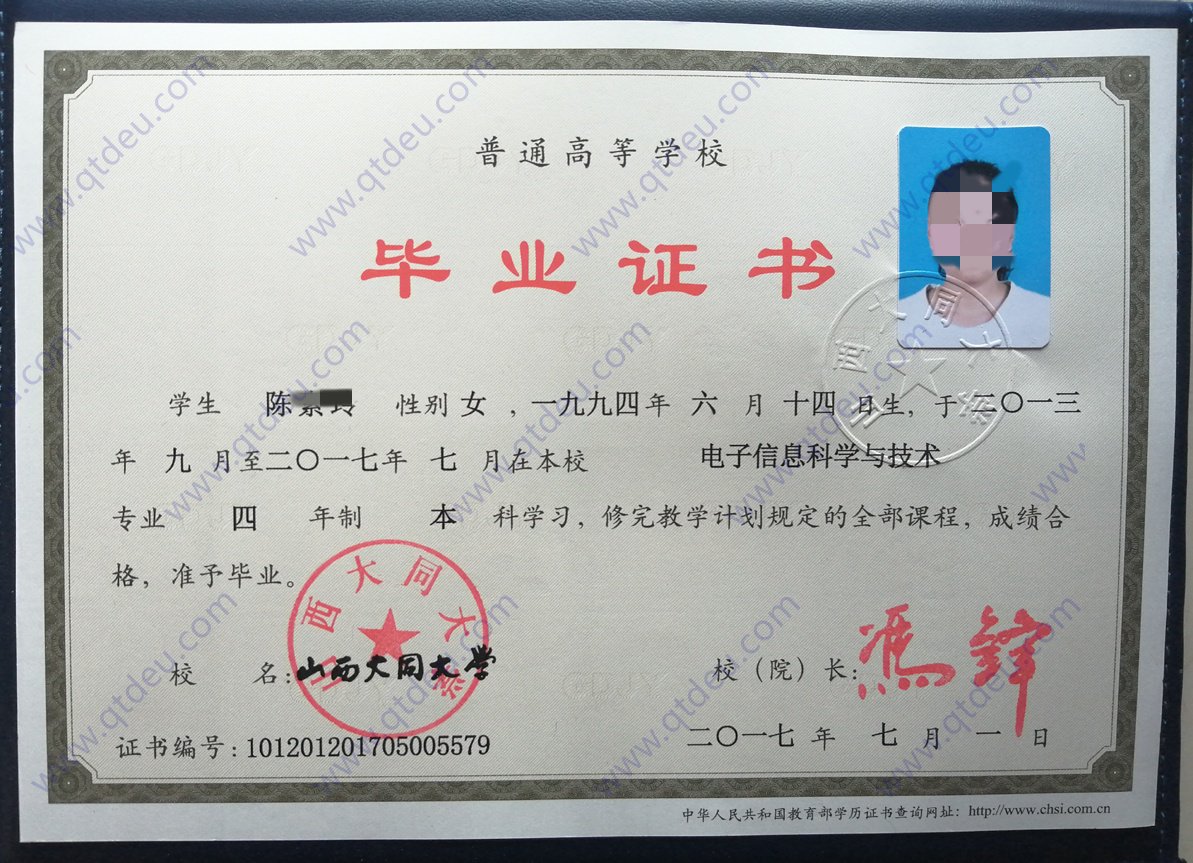 普通高等学校
毕业证书
学生 陈 性别 女 ,一九九四年 六 月 十四 日生, 于 二〇一三
年 九 月至二〇一七年 七 月在本校 电子信息科学与技术
专业 四 年制 本 科学习, 修完教学计划规定的全部课程, 成绩合
格, 准予毕业。
山西大同大学
校 名:山西大同大学
校（院）长:馮鋒
证书编号:101201201705005579
二〇一七 年 七 月 一 日
中华人民共和国教育部学历证书查询网址: http://www.chsi.com.cn
www.qtdeu.com